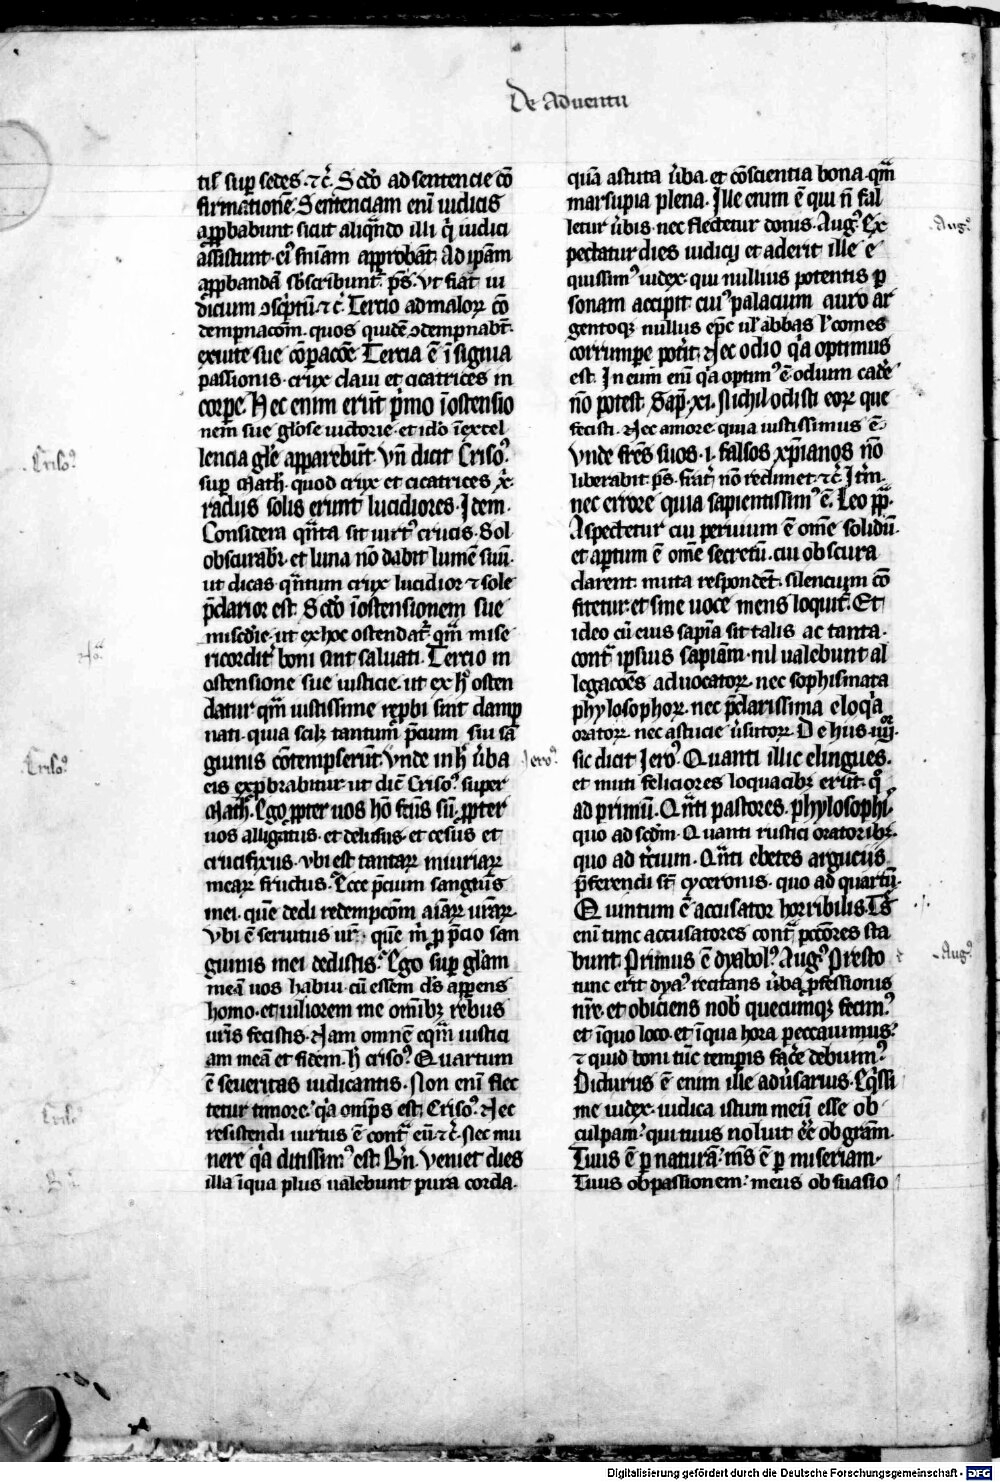 De aduentu
tis sup sedes ⁊c̄. Scd̓o ad sentencie cō
firmationē. Sentenciam enī iudicis
app̱babunt sicut aliqn̄do illi q̄ iudici
assistunt. ei᷒ sn̄iam approbāt. Ad ip̄am
app̱bandā sb̓scribunt᷑. p̄s. Vt fiāt iu
dicium ꝯsc͛ptū. ⁊c̄. Tercio ad maloꝝ cō
dempnacōm. quos quidē ꝯdempnabt̄.
exuite sue cōꝑacōe. Tercia ē īsignia
passionis. crux claui et cicatrices in
corꝑe. Hec enim erūt p͛mo īostensio
nem sue glo͛se uictorie. et ido̓ īexcel
lencia gl̓e apparebūt. Vn̄ dicit Criso᷒.
suꝑ Math̄. quod crux et cicatrices x͛
radiis solis erunt lucidiores. Idem.
Considera qn̄ta sit uirt᷒ crucis. Sol
obscurabr̄. et luna nō dabit lumē suū.
ut dicas qn̄tum crux lucidior ⁊ sole
p̄clarior est. Scd̓o īostensionem sue
mis̄cdie. ut ex hoc ostendat᷑. qm̄ mise
ricordit̓ boni sint saluati. Tercio in
ostensione sue iusticie. ut ex h̓ osten
datur qm̄ iustissime rep̱bi sint damp
nati. quia scilꝫ tantum p̄cium sui sā
guinis cōtempserūt. Vnde in h̓ v̓ba
eis exp̱brabitur. ut dic̄ Criso᷒. super
Math̄. Ego pp̱ter uos hō fcūs sū. pp̱ter
uos alligatus. et delusus. et cesus et
crucifixus. vbi est tantaꝝ iniuriaꝝ
meaꝝ fructus. Ecce p̄cium sangui̓s
mei. quē dedi redempcōm aīaꝝ urāꝝ.
Vbi ē seruitus ur̄. quē m̓ ꝑ p̄cio san
guinis mei dedistis. Ego suꝑ gl̓am
meā uos habui. cū essem d̓s apparens
homo. et uiliorem me omībꝫ rebus
ur̄is fecistis. Nam omnē eqm̄ iustici
am meā et fidem. h̓ criso᷒. Quartum
ē seueritas iudicantis. Non enī flec
tetur timore. q͛a omp̄s est. Criso᷒. Nec
resistendi uirtus ē cont᷑ eū. ⁊c̄. Nec mu
nere q͛a ditissim᷒ est. B̓n. Veniet dies
illa īqua plus ualebunt pura corda.
quā astuta v̓ba. et cōscientia bona. qm̄
marsupia plena. Ille enim ē qui n̄ fal
letur v̓bis. nec flectetur donis. Aug᷒. Ex
pectatur dies iudicij et aderit ille e
quissim᷒ iudex. qui nullius potentis ꝑ
sonam accipit cui᷒ palacium auro ar
gentoqꝫ nullus ep̄c ul̓ abbas l̓ comes
corrumꝑe poter̄it. Nec odio q͛a optimus
est. In eum enī q͛a optim᷒ ē odium cade̓
nō potest. Sap̄. xi. Nichil odisti eoꝝ que
fecisti. Nec amore quia iustissimus ē.
Vnde fr̄es suos .i. falsos xp̄ianos nō
liberabit. p̄s. frat̓ nō redimet ⁊c̄. It̓m.
nec errore quia sapientissim᷒ ē. Leo pp̄.
Aspectetur cui peruium ē ome̅ solidū.
et aꝑtum ē ome̅ secretū. cui obscura
clarent. muta respondēt. silencium cō
fitetur et sine uoce mens loquit᷑. Et
ideo cū eius sapīa sit talis ac tanta.
cont᷑ ipsius sapīam. nil ualebunt al
legacōes aduocatoꝝ. nec sophismata
phylosophoꝝ. nec p̄clarissima eloq͛a
oratoꝝ. nec astucie v̓sutoꝝ. De hiis iiij.or
sic dicit Jero᷒. Quanti illic elingues.
et muti feliciores loquacibꝫ erūt. q᷒
ad primū. Qn̄ti pastores. phylosophi̓.
quo ad scd̄m. Quanti rustici oratoribꝫ.
quo ad tc͛ium. Qn̄ti ebetes argucijs
p̄ferendi st̄ cyceronis. quo ad quartū.
Quintum ē accusator horribilis. T͛s
enī tunc accusatores cont᷑ pcc̄ores sta
bunt. Primus ē dyabol᷒. Aug᷒. Presto
tunc erit dya᷒. recitans v̓ba p̱fessionis
nr̄e. et obiciens nob̓ quecumqꝫ fecim᷒.
et īquo loco. et īqua hora peccauimus.
⁊ quid boni tūc temp̱is fac̓e debuim᷒.
Dicturus ē enim ille aduersarius. Eq̓ssi
me iudex. iudica istum meū esse ob
culpam. qui tuus noluit ee̅ ob gr̄am.
Tuus ē ꝑ naturā. ms̄ ē ꝑ miseriam.
Tuus ob passionem. meus ob suasio
Criso᷒.
Criso᷒.
Jero᷒.
Criso᷒
Aug᷒.
Aug᷒.
Digitalisierung gefördert durch die Deutsche Forschungsgemeinschaft - DFG